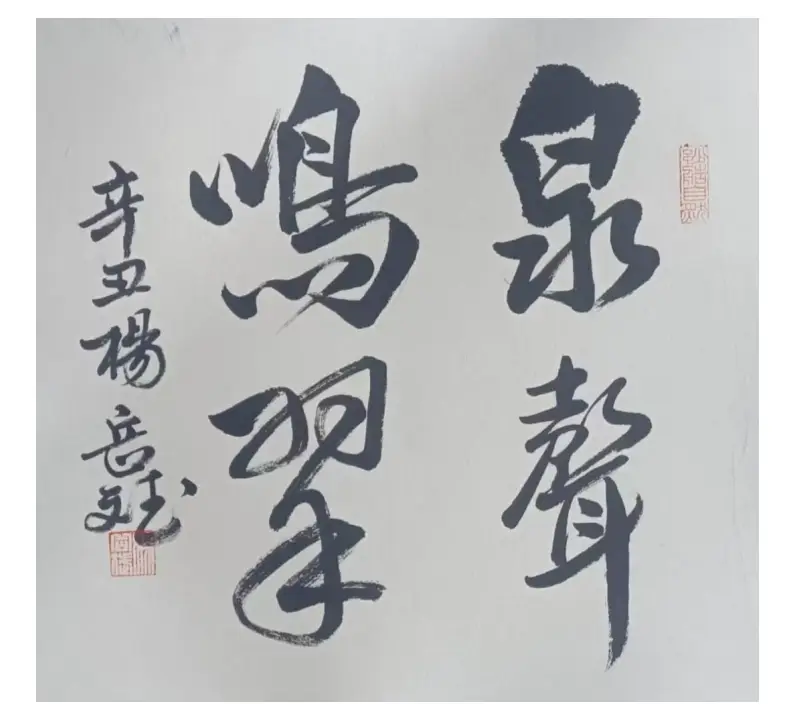 泉聲
鳴翠
辛丑楊岳斌